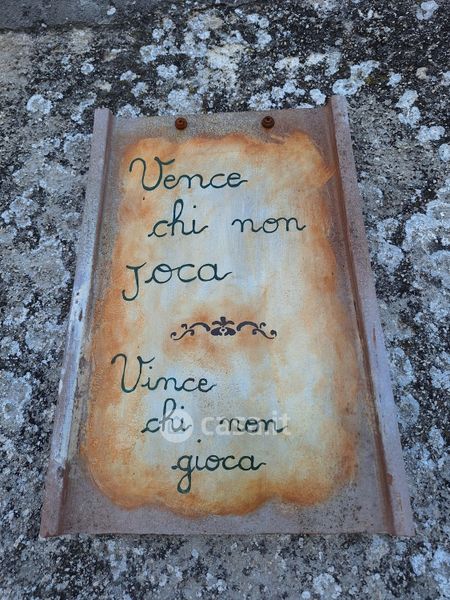 Vence
chi non
Joca
Vince
chi non
gioca
casa.it